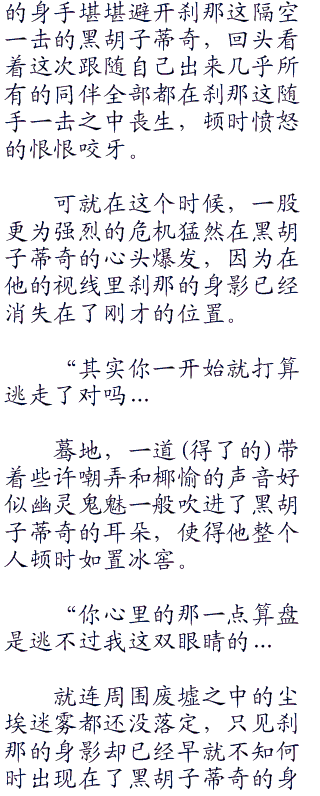 的身手堪堪避开刹那这隔空
一击的黑胡子蒂奇，回头看
着这次跟随自己出来几乎所
有的同伴全部都在刹那这随
手一击之中丧生，顿时愤怒
的恨恨咬牙。
可就在这个时候，一股
更为强烈的危机猛然在黑胡
子蒂奇的心头爆发，因为在
他的视线里刹那的身影已经
消失在了刚才的位置。
“其实你一开始就打算
逃走了对吗…
蓦地，一道(得了的)带
着些许嘲弄和椰愉的声音好
似幽灵鬼魅一般吹进了黑胡
子蒂奇的耳朵，使得他整个
人顿时如置冰窖。
“你心里的那一点算盘
是逃不过我这双眼睛的…
就连周围废墟之中的尘
埃迷雾都还没落定，只见刹
那的身影却已经早就不知何
时出现在了黑胡子蒂奇的身